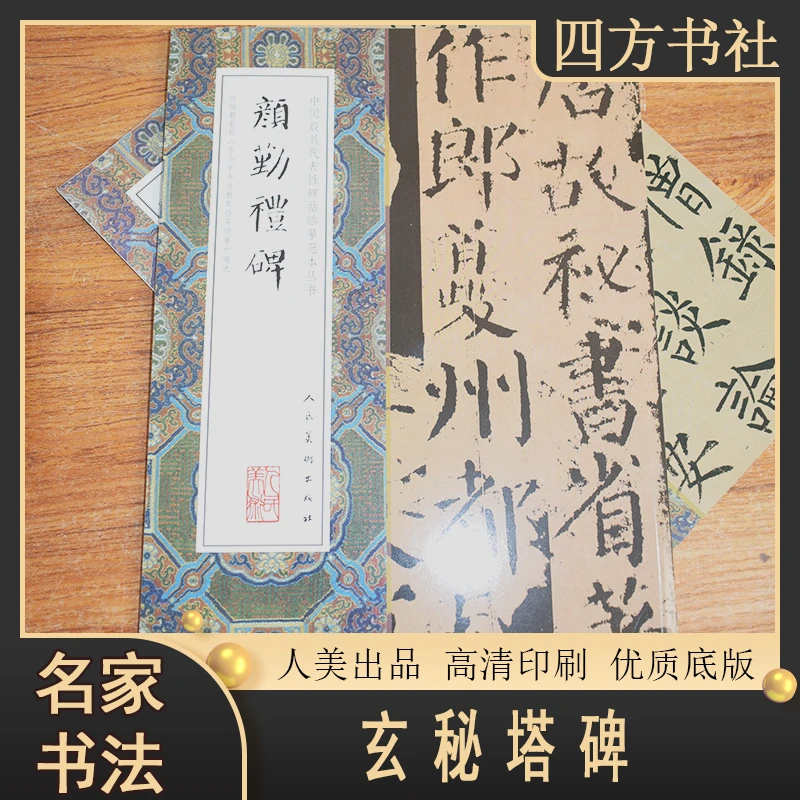 四方书社
中国最具代表性碑帖临摹范本丛书
顏勤禮碑
人民美術出版社
人民美術
故秘書省著
作郎夔州都
僧錄
談論
安
人美出品 高清印刷 优质底版
名家
书法
玄秘塔碑